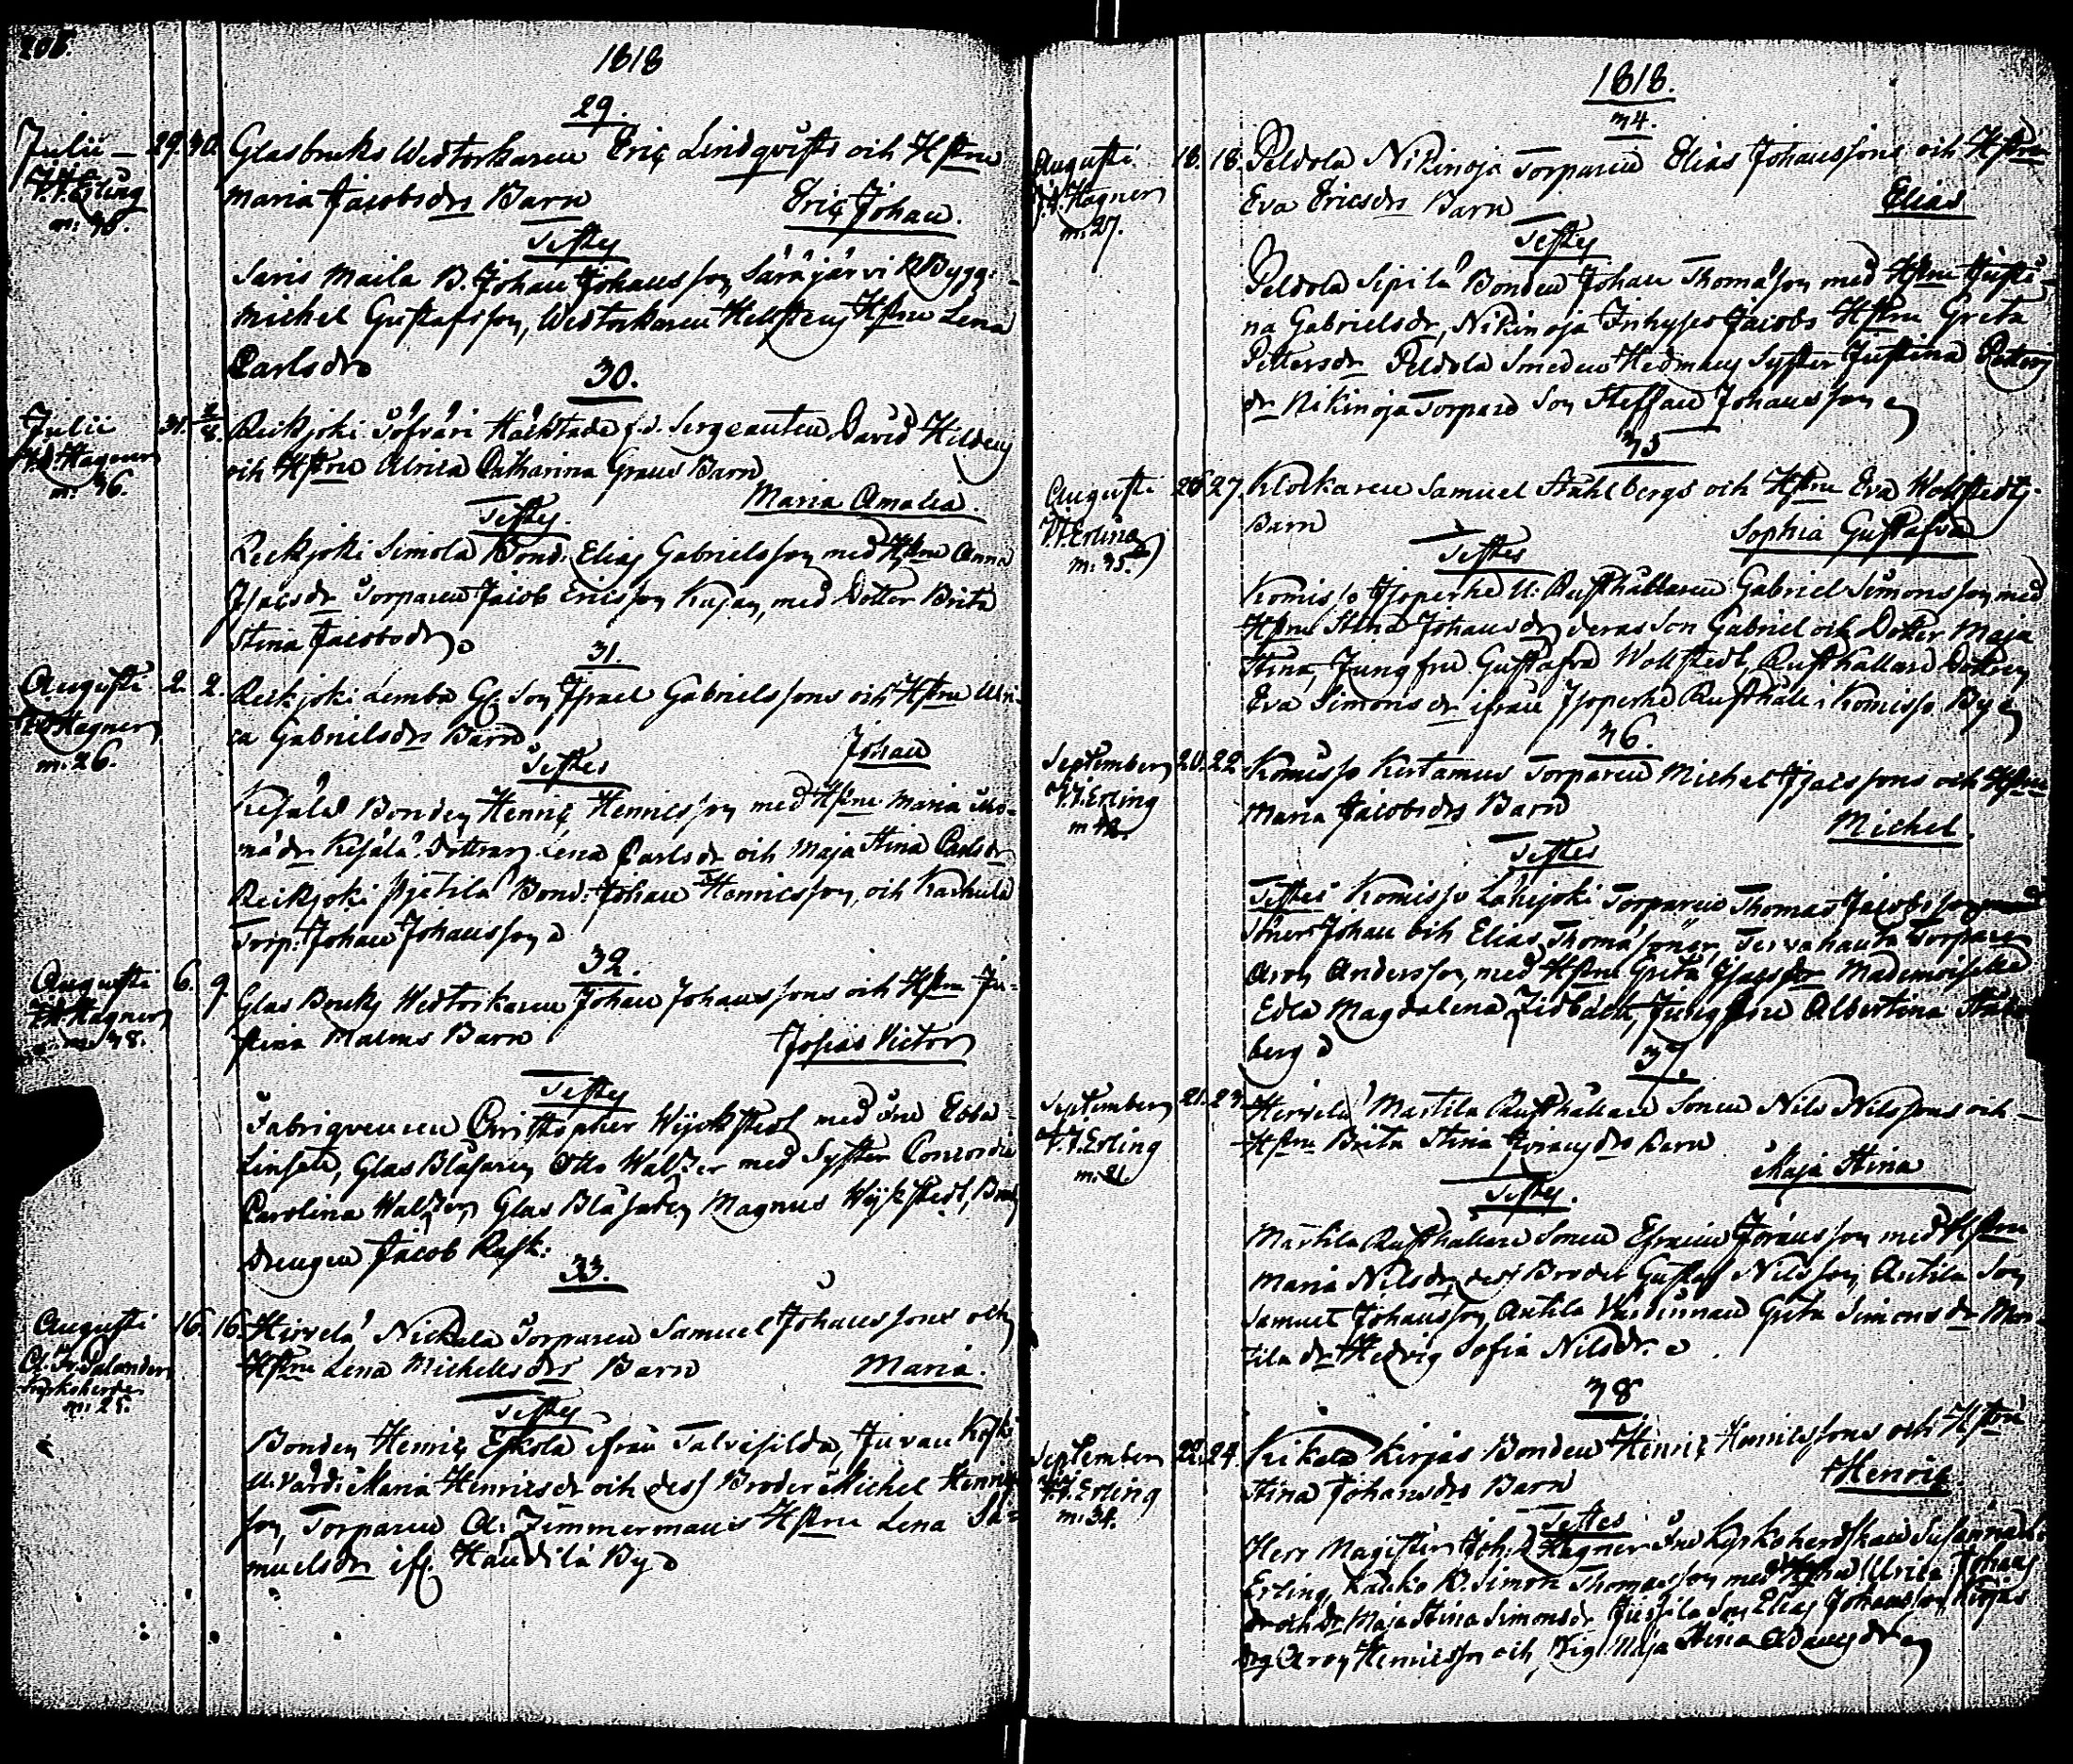 1818
29.
Julii 29. 30. Glasbruks Wedtorkaren Eric Lindqvists och Hstru
Erling
m: 30.
Maria Jacobsdrs Barn Eric Johan.
Testes
Saris Maila B. Johan Johansson, Säräjärvi NBygg:
Michel Gustafsson, Wedtorkaren Hellstens Hstru Lena
Carlsdr
30.
Julii 31. 2/8. Reikjoki Häcktade f.d. Sergeanten David Hildens
Hagner
m. 36.
och Hstru Ulrica Catharina Graus Barn
Maria Amalia.
Testes.
Reikjoki Simola Bond. Elias Gabrielsson med Hstru Anna
Isacsdr Torparen Jacob Ericsson Kujan, med Dotter Brita
Stina Jacobsdr
31.
Augusti 2. 2. Reikjoki Lemba Son Israel Gabrielssons och Hstru Ulri-
Hagner
m. 26.
ca Gabrielsdrs Barn Johan
Testes
Kesälä Bonden Henric Henricsson med Hstru Maria Tho-
mädr Kesälä Lena Carlsdr och Maja Stina Carlsdr
Reikjoki Pjätilä Bond: Johan Henricsson, och Karhula
Torp: Johan Johansson
32.
Augusti 6. 9. Glas Bruks Wedtorkaren Johan Johanssons och Hstru Ju-
Hagner
m. 38.
stina Malms Barn Josias Victor
Testes
Fabriqueuren Christopher Wijckstedt med Fru Ebba
Linsele, Glas Blåsaren Otto Walzer med Syster Concordia
Carolina Walzer, Glas Blåsaren Magnus Wijkstedt,
Drengen Jacob Rask.
33.
Augusti 16. 16. Hirvelä Nickala Torparen Samuel Johanssons och
Salander
Kyrkoherde
m: 25.
Hstru Lena Michelsdrs Barn Maria.
Testes
Bonden Henric Eskola ifrån Talvisilda, Juvan Koski
Maria Henricsdr och dess Broder Michel Henrics
son, Torparen A. Zimmermans Hstru Lena Sa-
muelsdr if. Händilä By
1818.
34.
Augusti 18. 18. Peldola Nikinoja Torparen Elias Johanssons och Hstru
Hagner
m: 27.
Eva Ericsdrs Barn Elias
Testes
Peldola Sipilä Bonden Johan Thomasson med Hstru Justi-
na Gabrielsdr, Nikinoja Inhyses Jacobs Hstru Greta
Pettersdr Peldola Smeden Hedmans Syster Justina Petters
dr Nikinoja Torpare Son Steffan Johansson
35
Augusti 26 27. Klockaren Samuel Ståhlbergs och Hstru Eva Wollstedts
Erling
m: 35.
Barn Sophia Gustafva
Testes
Komisso Isoperhe U: Rusthållaren Gabriel Simonsson med
Hstru Stina Johansdr, deras Son Gabriel och Dotter Maja
Stina, Jungfru Gustafva Wollstedt, Rusthållare Dottren
Eva Simonsdr ifrån Isoperhe Rusthåll i Komisso By
36.
September 20. 22 Komisso Kertamus Torparen Michel Isacssons och Hstru
Erling
Maria Jacobsdrs Barn Michel.
Testes
Testes Komisso Lähijoki Torparen Thomas Jacobsson
Söner Johan och Elias Thomä söner, Tervahauta Torparen
Aron Andersson, med Hstru Greta Isacsdr Mademoiselle
Edla Magdalena Zidbäck, Jungfru Albertina Ståhl
berg
37.
September 21. 23 Hirvelä Martila Rusthållare Sonen Nils Nilssons och
Erling
m: 21.
Hstru Brita Stina Göransdrs Barn Maja Stina
Testes.
Martila Rusthållare Sonen Efraim Göransson med Hstru
Maria Nilsdr, dess Broder Gustaf Nilsson, Antila Son
Samuel Johansson, Antila Värdinnan Greta Simonsdr Mar-
tila dr Hedvig Sofia Nilsdr.
38
September 22. 24. Kikala Kirjas Bonden Henric Henricssons och Hstru
Erling
m: 34.
Stina Johansdrs Barn Henric.
Testes
Herr Magister Joh: Hagner Fru Kyrkoherdskan Susanna
Erling, Kauko B. Simon Thomasson med Hstru Ulrica Johans
dr och Dr Maja Stina Simonsdr Jussila Son Elias Johansson, Kirjas
drg Aron Henricsson och Pig. Maja Stina Adamsdr